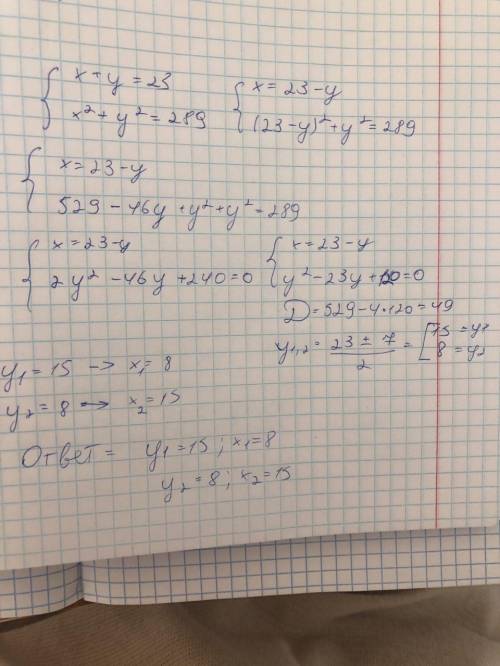 { x + y = 23 { x = 23 - y
x² + y² = 289 (23 - y)² + y² = 289
{ x = 23 - y
529 - 46y + y² + y² = 289
{ x = 23 - y { x = 23 - y
2y² - 46y + 240 = 0 y² - 23y + 120 = 0
D = 529 - 4 • 120 = 49
y₁,₂ = (23 ± 7)/2 = [ 15 = y₁
8 = y₂
y₁ = 15 -> x₁ = 8
y₂ = 8 -> x₂ = 15
Ответ = y₁ = 15 ; x₁ = 8
y₂ = 8 ; x₂ = 15